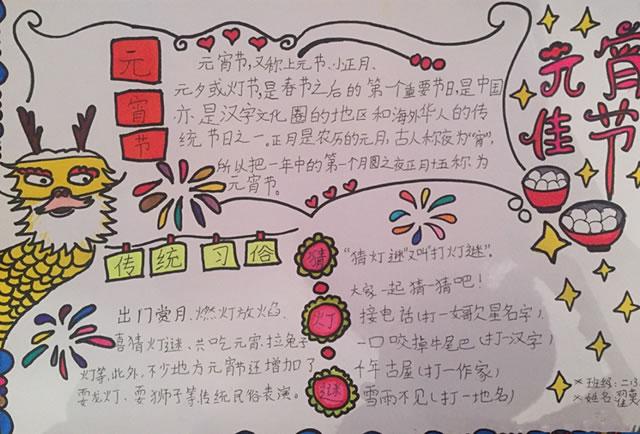 元宵节
元宵佳节
元宵节,又称上元节、小正月、
元夕或灯节,是春节之后的第一个重要节日,是中国
亦是汉字文化圈的地区和海外华人的传
统节日之一。正月是农历的元月,古人称夜为"宵",
所以把一年中的第一个月圆之夜正月十五称为
元宵节。
传统习俗
出门赏月、燃灯放焰、
喜猜灯谜、共吃元宵、拉兔子
灯等,此外,不少地方元宵节还增加了
耍龙灯、耍狮子等传统民俗表演。
猜灯谜
"猜灯谜"又叫"打灯谜"。
大家一起猜一猜吧!
接电话(打一女歌星名字)
一口咬掉牛尾巴(打一汉字)
千年古屋(打一作家)
雪雨不见(打一地名)
×班级:二13
×姓名:翟